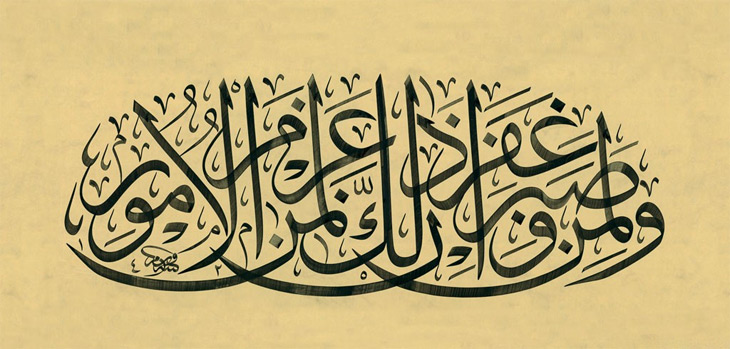 وَلَمَن صَبَرَ وَغَفَرَ إِنَّ ذَٰلِكَ لَمِنْ عَزْمِ الْأُمُورِ